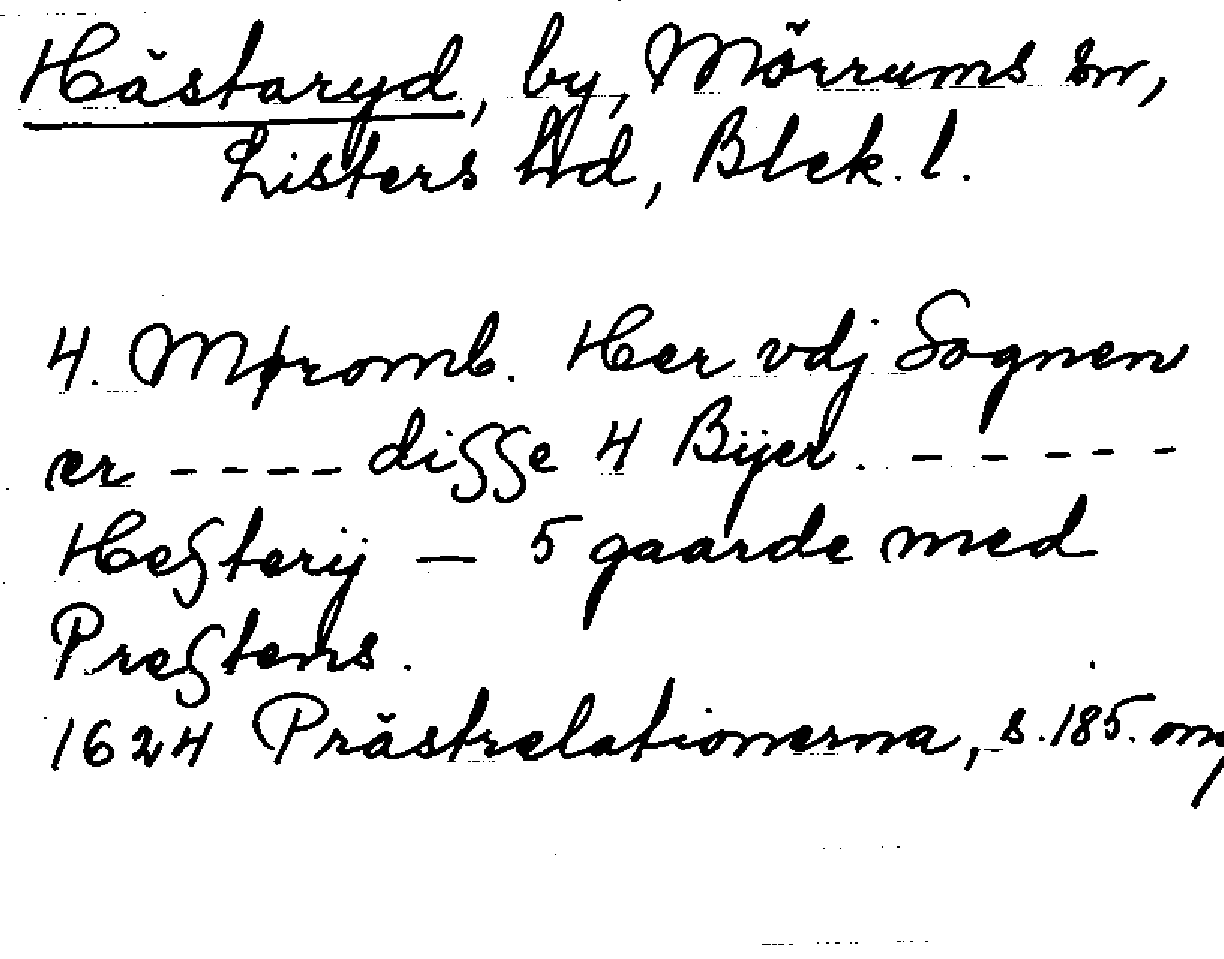 Hästaryd, by, Mörrums sn,
Listers hd, Blek. l.
4. Møromb. Her vdj Sognen
er ---- disse 4 Bÿer. -----
Hesterij — 5 gaarde med
Prestens.
1624 Prästrelationerna, s. 185. omg